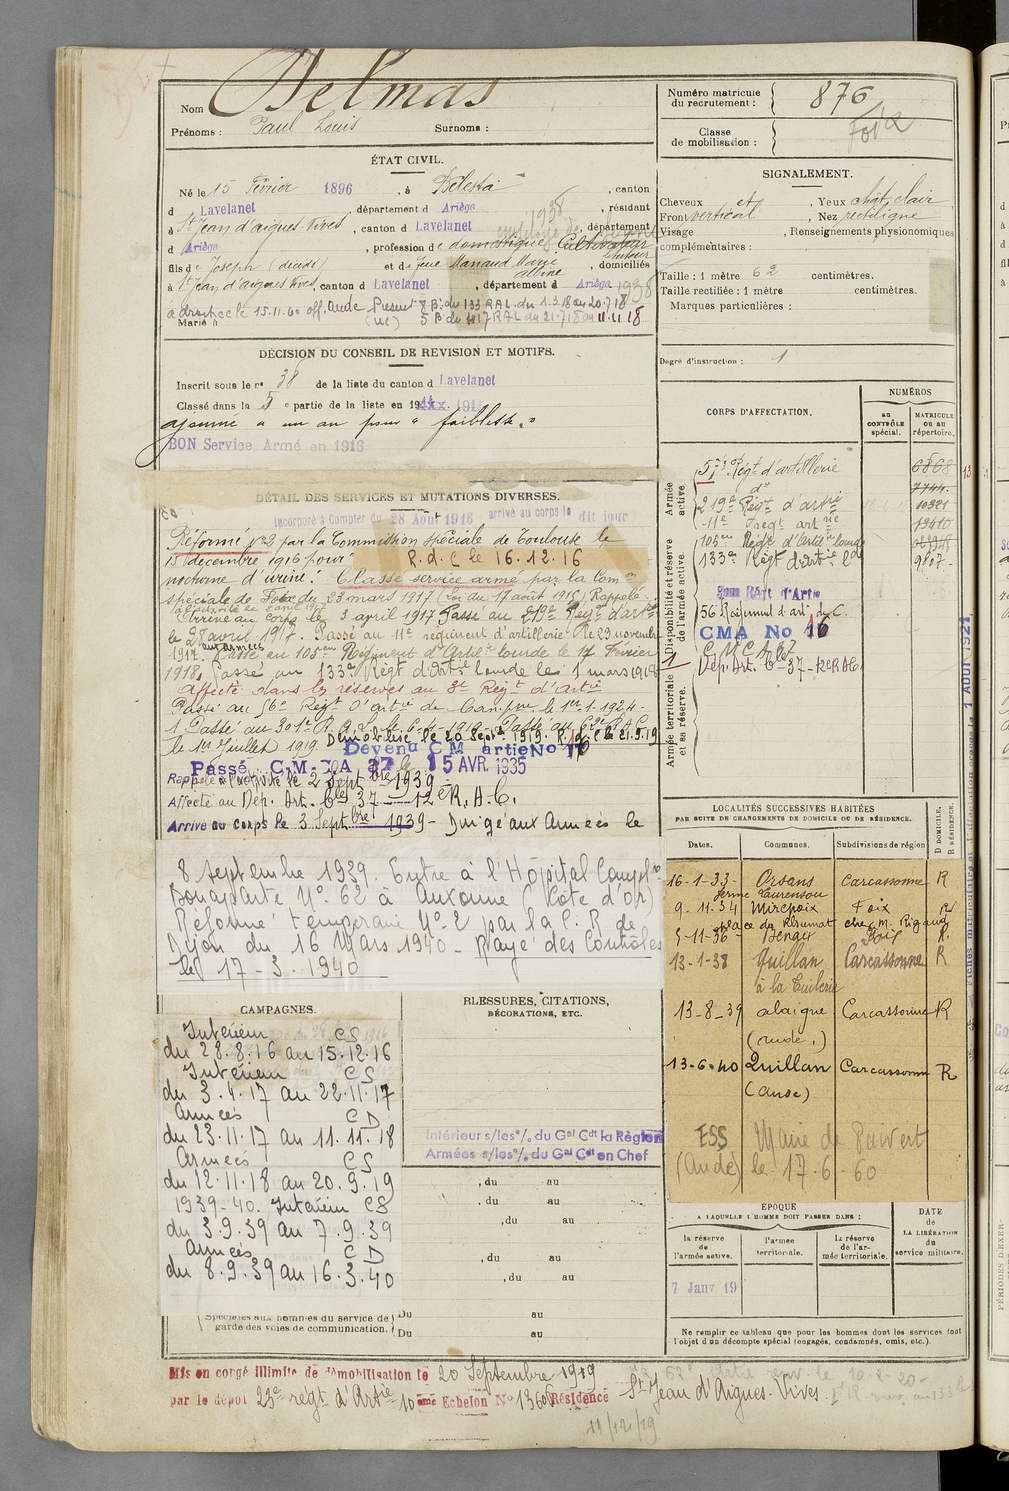 Nom Delmas
Prénoms : Paul Louis Surnoms :
Numéro matricule du recrutement : 876
Classe de mobilisation :
Foix
ÉTAT CIVIL.
Né le 15 Février 1896, à Bélesta, canton
d Lavelanet, département d Ariège, résidant
à St Jean d'aigues-Vives, canton d Lavelanet, département
d Ariège, profession de domestique Cultivateur
fils de Joseph (décédé) et de feue Manaud Marie, domiciliés
albine
à St Jean d'aigues Vives, canton d Lavelanet, département d Ariège 1938
à droit carte 15.11.60 off. Aude Présent 8 B. du 133 RAL du 1.3.18 au 20.7.18
(UC) 5 B du 417 RAL du 21.7.18 au 11.11.18
Marié à
SIGNALEMENT.
Cheveux et, Yeux chât. clair
Front vertical, Nez rectiligne
Visage, Renseignements physionomiques
complémentaires :
Taille : 1 mètre 62 centimètres.
Taille rectifiée : 1 mètre centimètres.
Marques particulières :
Degré d'instruction : 1
DÉCISION DU CONSEIL DE REVISION ET MOTIFS.
Inscrit sous le n° 38 de la liste du canton d Lavelanet
Classé dans la 5 e partie de la liste en 191
ajourné à un an pour "faiblesse"
BON Service Armé en 1916
DÉTAIL DES SERVICES ET MUTATIONS DIVERSES.
Incorporé à Compter du 28 Août 1916 arrivé au corps le dit jour
Réformé n°2 par la Commission spéciale de Toulouse le
15 décembre 1916 pour R.d.C le 16.12.16
nocturne d'urine. Classé service armé par la Com on
spéciale de Foix du 23 mars 1917 (Loi du 17 août 1915) Rappelé
à l'activité le 2 avril 1917
Arrivé au corps le 3 avril 1917 Passé au 219e Régt d'artie
le 28 avril 1917. Passé au 11e régiment d'artillerie le 23 novembre
1917 aux armées Passé au 105e Régiment d'Artie lourde le 17 Février
1918. Passé au 133e Régt d'Artie lourde le 1 mars 1918
Affecté dans les réserves au 3e Régt d'artie
Passé au 56e Régt d'artie de Campne le 1er-1-1924-
Passé au 301e R.A.L. le 6-4-1919. Passé au
le 1er Juillet 1919 Démobilisé le 20 Sept 1919. R.d.C le 21.9.19
Devenu C M artie No 16
Passé C.M.A le 15 AVR. 1935
Rappelé à l'activité le 2 Septbre 1939-
Affecté au Dép. Art. 6le 37 - 12e R.A.C.
Arrivé au corps le 3 Septbre 1939- Dirigé aux Armées le
8 septembre 1939. Entré à l'Hôpital Complre
Bonaparte N° 62 à Auxonne (Côte d'or)
Réformé temporaire N° 2 par la C.R de
Dijon du 16 Mars 1940 - Rayé des Contrôles
le 17-3.1940
CORPS D'AFFECTATION.
NUMÉROS
au CONTRÔLE spécial.
MATRICULE OU AU répertoire.
Armée active
57e Régt d'artillerie 6868
do 7744
219e Régt d'artie 10321
11e régt artie 13410
Disponibilité et réserve de l'armée active.
105e Régt d'Artie lourde
133e Régt d'artie lde 9807
Régt d'Artie
56 Régiment d'arti. de C.
CMA No 16
Armée territoriale et sa réserve.
Dép. Art. 6le-37-12e RAC
LOCALITÉS SUCCESSIVES HABITÉES
PAR SUITE DE CHANGEMENTS DE DOMICILE OU DE RÉSIDENCE.
Dates. Communes. Subdivisions de région D DOMICILE. R RÉSIDENCE.
16-1-33- Orsans Carcassonne R
ferme Laurensou
9-11-34 Mirepoix Foix R
place du Rhumat chez M. Rigaud
5-11-36- Foix R.
13-1-38 Quillan Carcassonne R
à la Tuilerie
13-8-39 alaigne Carcassonne R
(aude.)
13-6-40 Quillan Carcassonne R
(aude)
ESS Mairie de Puivert
(Aude) le 17-6-60
CAMPAGNES.
Intérieur CS
du 28.8.16 au 15.12.16
Intérieur CS
du 3.4.17 au 22.11.17
Armées CD
du 23.11.17 au 11.11.18
Armées CS
du 12.11.18 au 20.9.19
1939-40. Intérieur CS
du 3.9.39 au 7.9.39
Armées CD
du 8.9.39 au 16.3.40
Spéciales aux hommes du service de garde des voies de communication. Du au
Du au
BLESSURES, CITATIONS,
DÉCORATIONS, ETC.
Intérieur s/les % du Gal Cdt la Région
Armées s/les % du Gal Cdt en Chef
, du au
, du au
, du au
, du au
, du au
ÉPOQUE
A LAQUELLE L'HOMME DOIT PASSER DANS :
la réserve de l'armée active.
l'armée territoriale.
la réserve de l'armée territoriale.
DATE de LA LIBÉRATION du service militaire.
7 Janv 19
Ne remplir ce tableau que pour les hommes dont les services font
l'objet d'un décompte spécial (engagés, condamnés, omis, etc.).
Mis en congé illimité de démobilisation le 20 Septembre 1919
par le dépôt 23e régt d'Artie 10 ème Echelon N° 1360 Résidence St Jean d'Aigues-Vives.
11/12/19